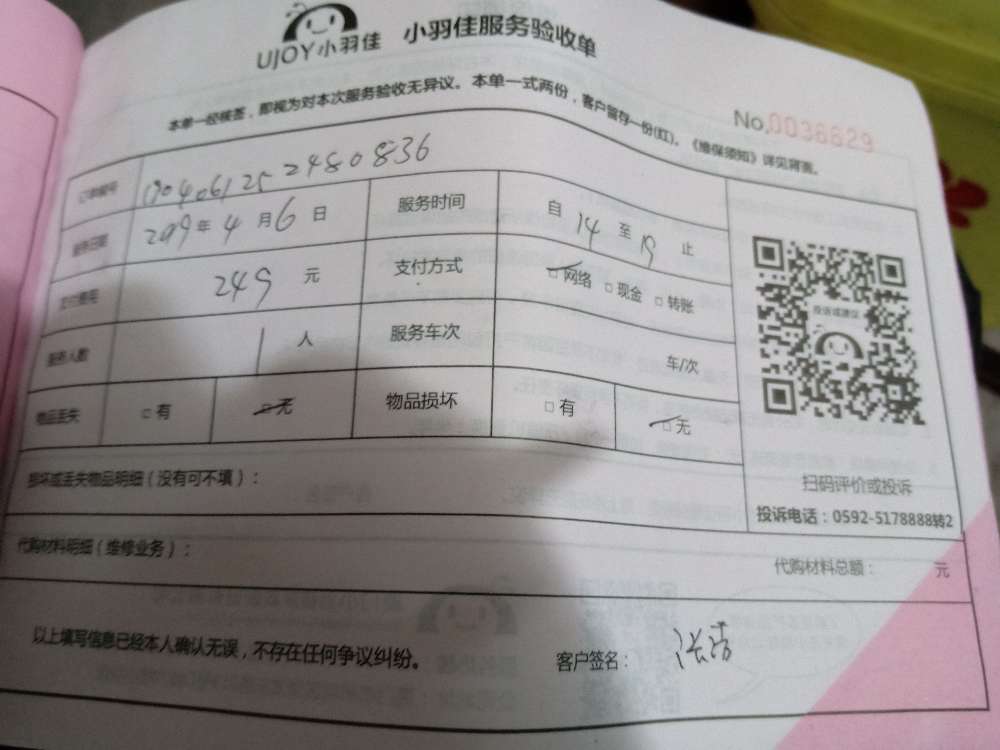 UJOY小羽佳 小羽佳服务验收单
本单一经核签，即视为对本次服务验收无异议。本单一式两份，客户留存一份(红)。《维保须知》详见背面。
No.0036629
订单编号 190406125 2480836
服务日期 2019年 4 月 6 日 服务时间 自 14 至 19 止
支付费用 249 元 支付方式 □网络 □现金 □转账
服务人数 1 人 服务车次 车/次
物品丢失 □有 □无 物品损坏 □有 □无
投诉或建议
扫码评价或投诉
投诉电话：0592-5178888转2
损坏或丢失物品明细（没有可不填）：
代购材料明细（维修业务）： 代购材料总额： 元
以上填写信息已经本人确认无误，不存在任何争议纠纷。 客户签名：